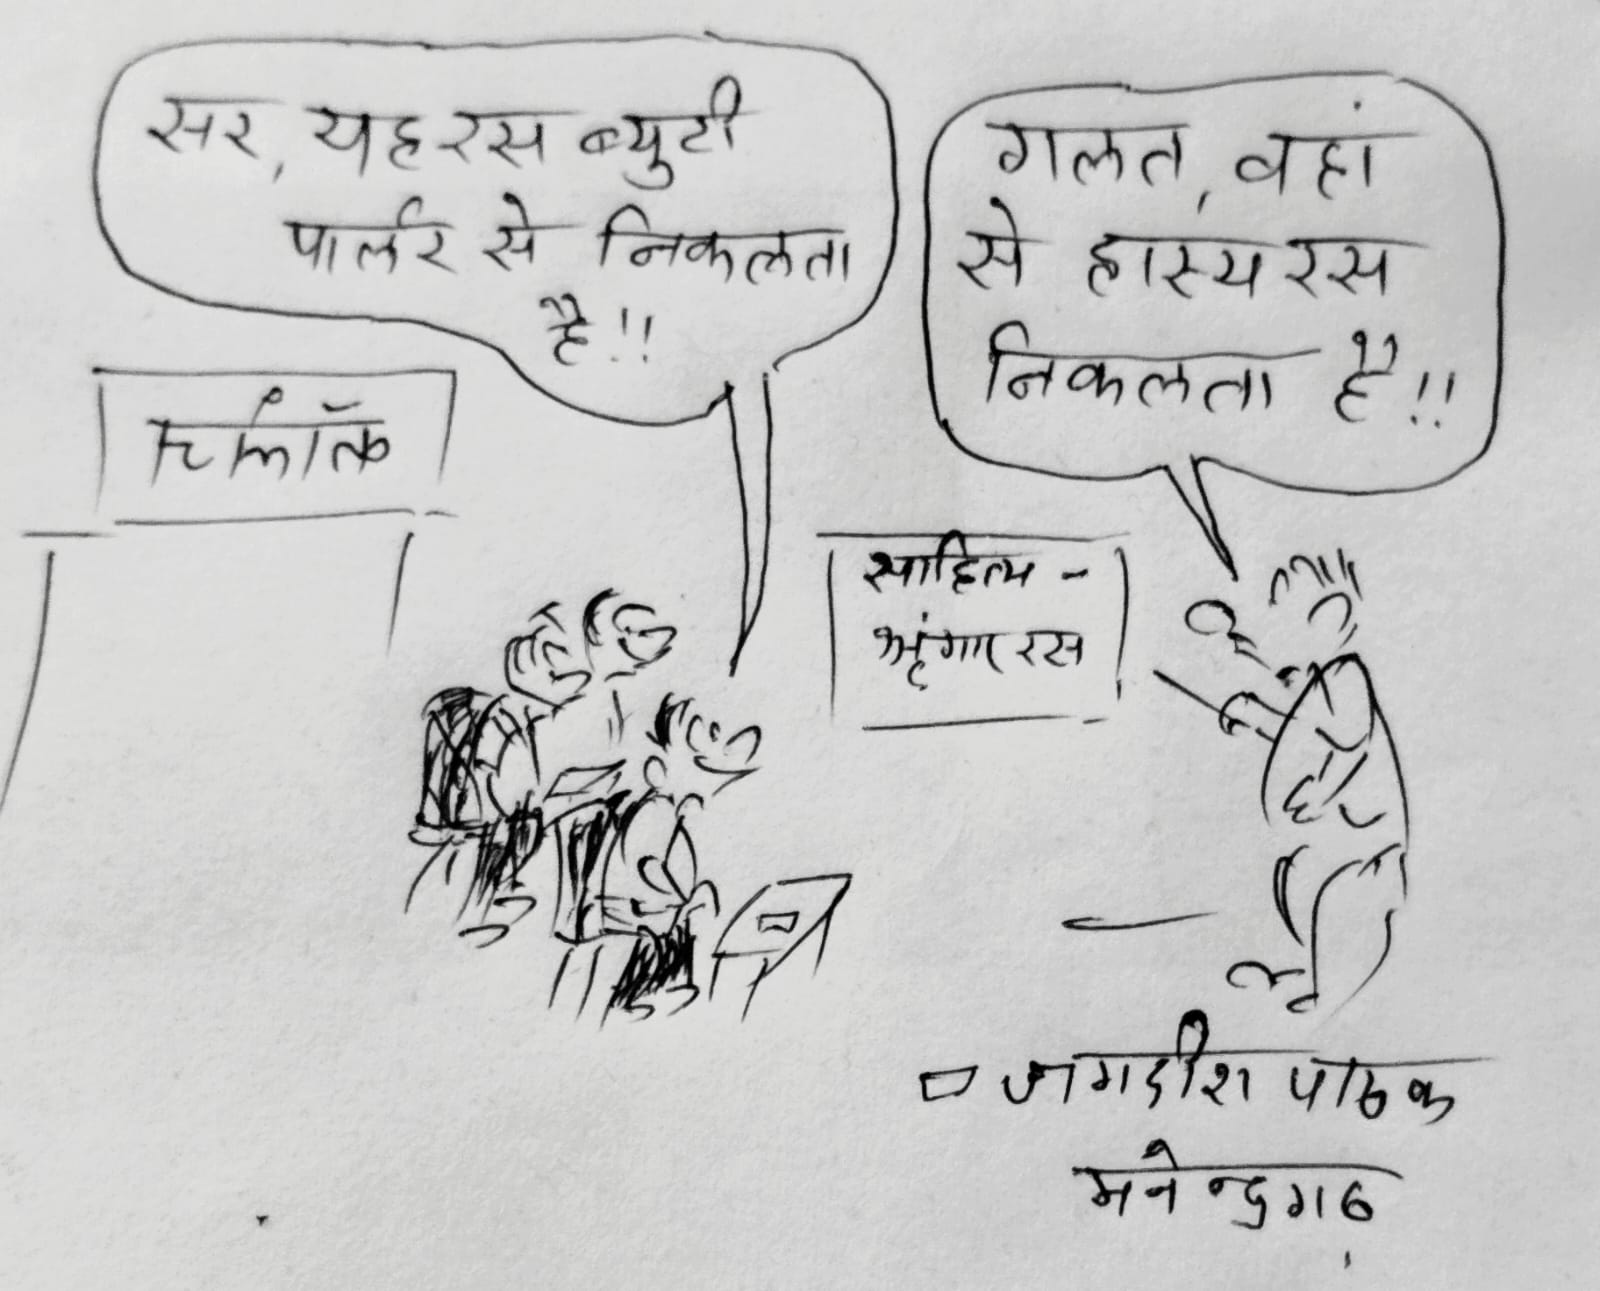 सर, यह रस ब्युटी
पार्लर से निकलता
है!!
गलत, वहां
से हास्य रस
निकलता है!!
साहित्य -
श्रृंगार रस
जगदीश पाठक
मनेन्द्रगढ